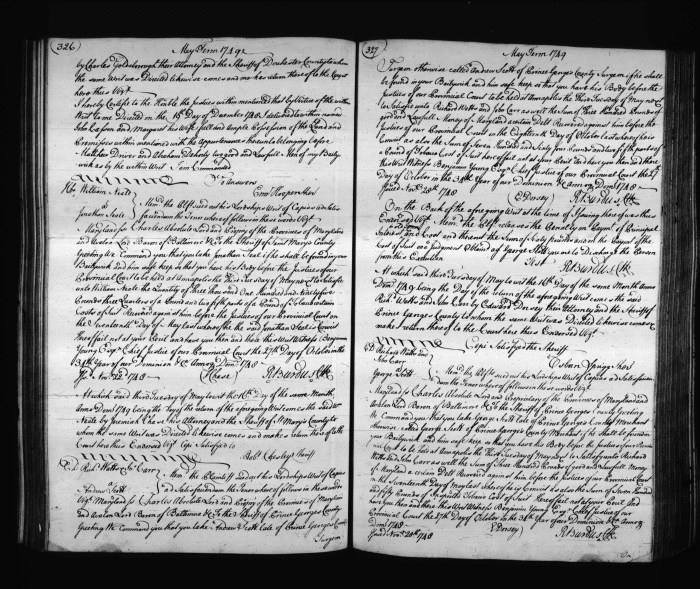 326
May Term 1749
by Charles Goldsborough their Attorney and the Sheriff of Dorchester County to whom
the same Writ was Directed likewise comes and makes return thereof to the Court
here thus Vizt
I hereby Certifie to the Honble the Justices within mentioned that by Virtue of the within
Writ to me Directed on the 15th Day of December 1748 I delivered to within named
John Eason and Margaret his Wife full and ample Possession of the Land and
Premisses within mentioned with the appurtenances thereunto belonging before
Matthew Driver and Abraham good and Lawfull Men of my Baily-
wick as by the within Writ I am Commanded
William Neale
Jonathan Seale
Memd the Plt sued out his Lordships Writ of Capias ad Satis
faciendum the Tenor whereof follows in these words Vizt
Maryland ss Charles Absolute Lord and Propry of the Provinces of Maryland
and Avalon Lord Baron of Baltimore &c To the Sheriff of Saint Marys County
Greeting We Command you that you take Jonathan Seale if he shall be found in your
Bailywick and him safe keep so that you have his Body before the Justices of our
Provincial Court to be held at Annapolis the third Tuesday of May next to Satisfie
unto William Neale the Quantity of three thousand One Hundred and Ninety five
Pounds three Quarters of a Pound and two fifth parts of a Pound of Tobacco certain
Costs of Suit Recovered against him before the Justices of our Provincial Court on
the Seventeenth Day of May last whereof the said Jonathan Seale is Convict
Hereof fail not at your Peril and have you then and there this Writ Witness Benjamin
Young Esqr Chief Justice of our Provincial Court the 27th Day of October in the
34th Year of our Dominion &c Annoq Domi 1748
Issd Novr 22 1748
Chase
R Burdus Clk
At which said third Tuesday of May to wit the 16th Day of the same Month
Anno Domi 1749 being the Day of the return of the aforegoing Writ comes the said William
Neale by Jeremiah Chase his Attorney and the Sheriff of St Marys County to
whom the same Writ was Directed likewise comes and makes return thereof to the
Court here thus Endorsed Vizt Cepi Satisfied
Sheriff
Richd Watts Jno Carr
Andrew Scott
Memd the Plaintiffs sued out his Lordships Writ of Capias
ad Satisfaciendum the Tenor whereof follows in these words
Vizt Maryland ss Charles Absolute Lord and Propry of the Provinces of Maryland
and Avalon Lord Baron of Baltimore &c To the Sheriff of Prince Georges County
Greeting We Command you that you take Andrew Scott late of Prince Georges County
Surgeon
327
May Term 1749
Surgeon otherwise called Andrew Scott of Prince Georges County Surgeon if he shall
be found in your Bailywick and him safe keep so that you have his Body before the
Justices of our Provincial Court to be held at Annapolis the third Tuesday of May next
to Satisfie unto Richard Watts and John Carr as well the Sum of Three Hundred Pounds of
good and Lawfull Money of Maryland a certain Debt Recovered against him before the
Justices of our Provincial Court on the Eighteenth Day of October last whereof he is
Convict as also the Sum of Seven Hundred and Sixty four Pounds and two fifth parts of
a Pound of Tobacco Cost of Suit hereof fail not at your Peril And have you then and there
this Writ Witness Benjamin Young Esqr Chief Justice of our Provincial Court the 27
Day of October in the 34th Year of our Dominion &c Annoq Domi 1748
Issued Novr 20th 1748
E Dorsey
R Burdus Clk
On the Back of the aforegoing Writ at the time of Issuing thereof was thus
Endorsed Vizt Memd the Plts releases the Penalty on Paymt of Principal
Interest and Cost and thereof the Sum of Sixty pounds and on the Paymt of the
Cost of Suit on a Judgment Obtaind agt George Scott you are to Discharge the Person
from this Execution
Test
R Burdus Clk
At which said third Tuesday of May to wit the 16th Day of the same Month Anno
Domi 1749 being the Day of the return of the aforegoing Writ comes the said
Richd Watts and John Carr by Edward Dorsey their Attorney and the Sheriff of
Prince Georges County to whom the same Writ was Directed likewise comes &
makes return thereof to the Court here thus Endorsed Vizt
Cepi Satisfied the Sheriff
Osborn Sprigg Sher
Richard Watts and
John Carr
George Scott
Memd the Plts sued out his Lordships Writ of Capias ad Satisfacien
dum the Tenor whereof follows in these words Vizt
Maryland ss Charles Absolute Lord and Proprietary of the Provinces of Maryland and
Avalon Lord Baron of Baltimore &c To the Sheriff of Prince Georges County Greeting
We Command you that you take George Scott late of Prince Georges County Merchant
otherwise called George Scott of Prince Georges County Merchant if he shall be found in
your Bailywick and him safe keep so that you have his Body before the Justices of our Provin
cial Court to be held at Annapolis the third Tuesday of May next to Satisfie unto Richard
Watts and John Carr as well the Sum of Three Hundred Pounds of good and Lawfull Money
of Maryland a certain Debt Recovered against him before the Justices of our Provincial Court
on the Seventeenth Day of May last whereof he is Convict as also the Sum of Seven Hundred
and fifty Pounds of Tobacco Costs of Suit Hereof fail not at your Peril and
have you then and there this Writ Witness Benjamin Young Esqr Chief Justice of our
Provincial Court the 27th Day of October in the 34th Year of our Dominion &c Annoq
Domi 1748
Issued Novr 20th 1748
E Dorsey
R Burdus Clk